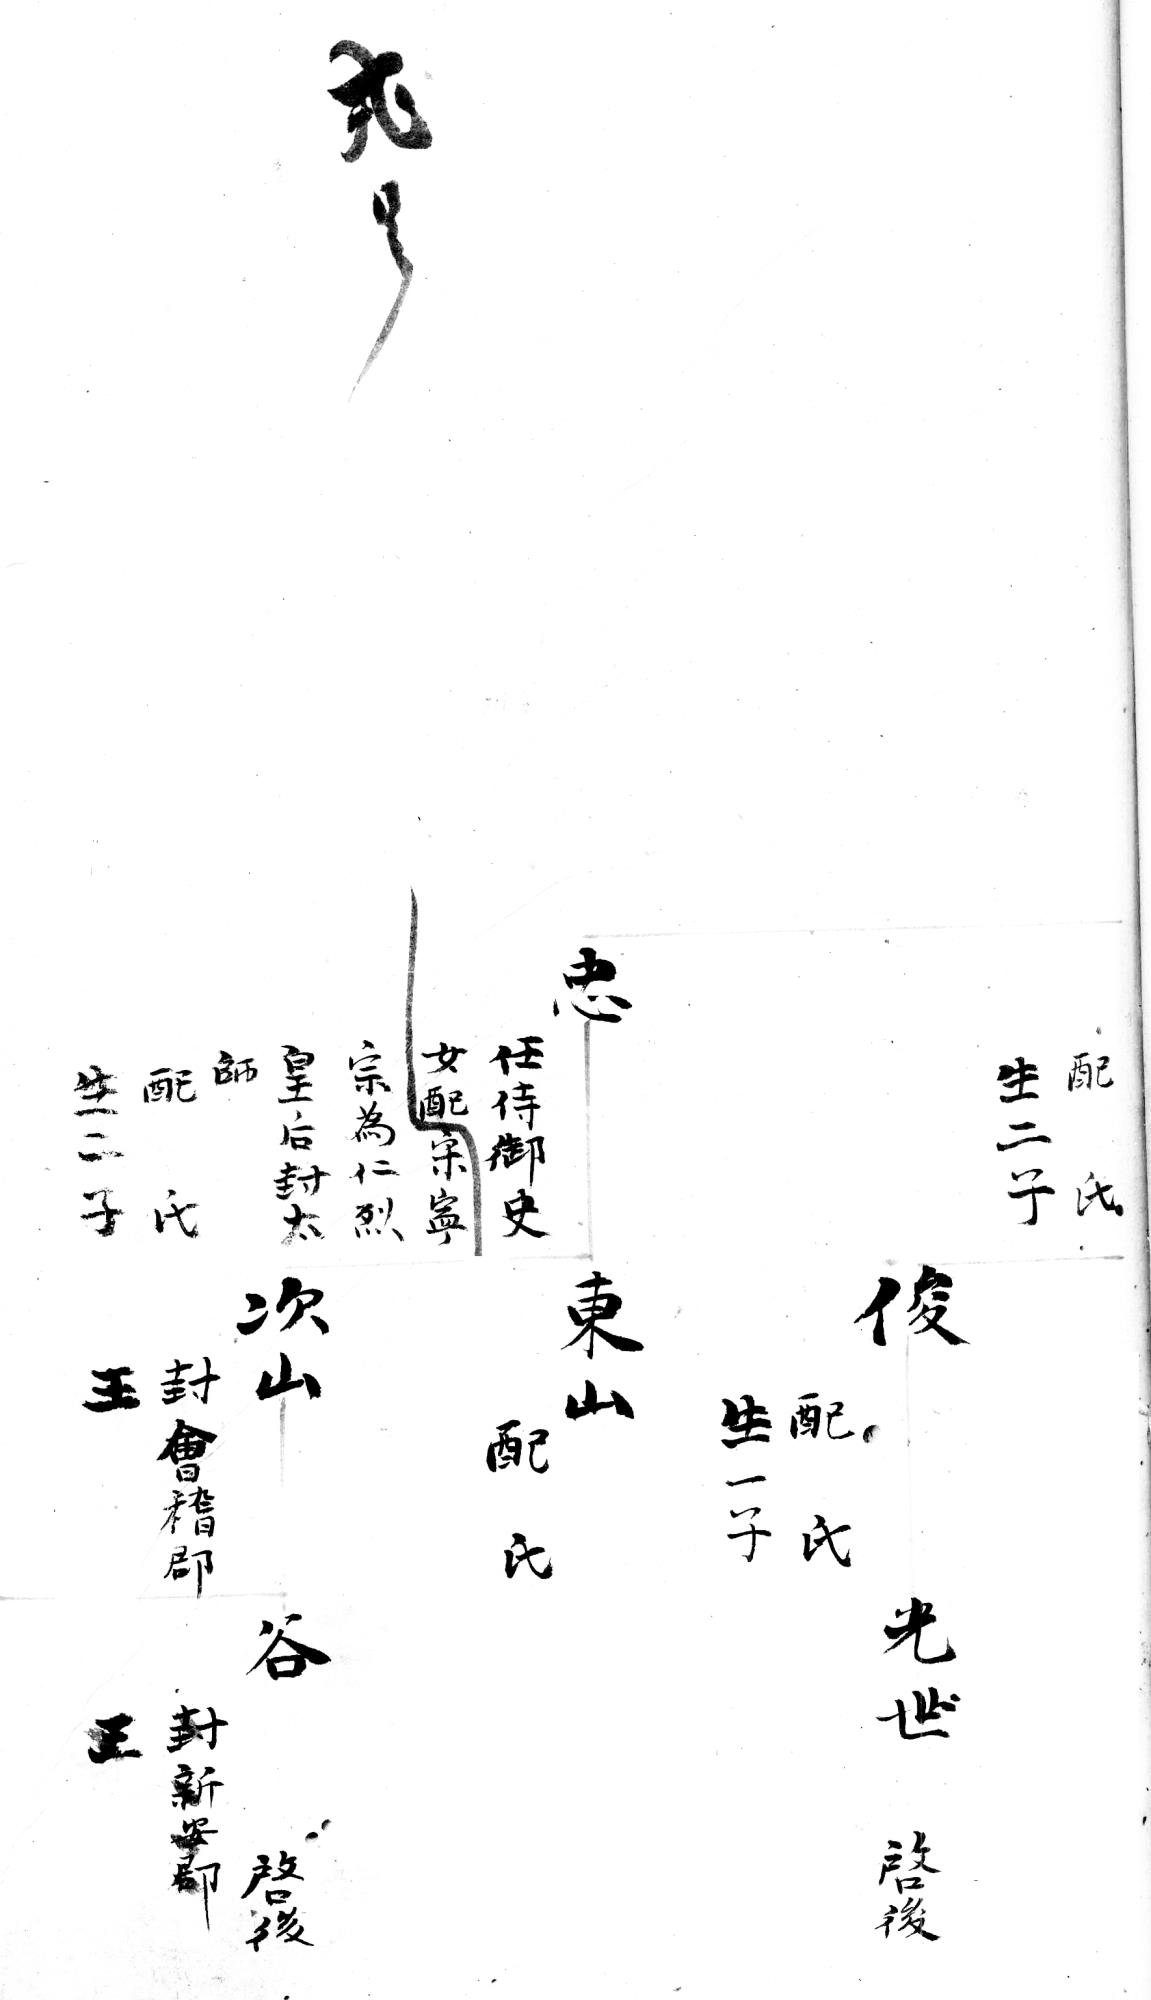 配氏
生二子
忠
任侍御史
女配宋寧
宗為仁烈
皇后封太
師
配氏
生二子
俊
配氏
生一子
東山
配氏
次山
封會稽郡
王
光世
啓後
谷
封新安郡
王
啓後